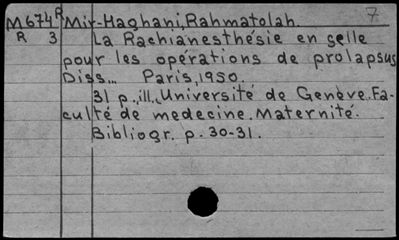 7
M674R Mir-Haghani, Rahmatolah.
R 3 La Rachianesthésie en selle
pour les opérations de prolapsus
Diss... Paris, 1950.
31 p., ill., Université de Genève. Fa-
culté de medecine. Maternité.
Bibliogr. p. 30-31.